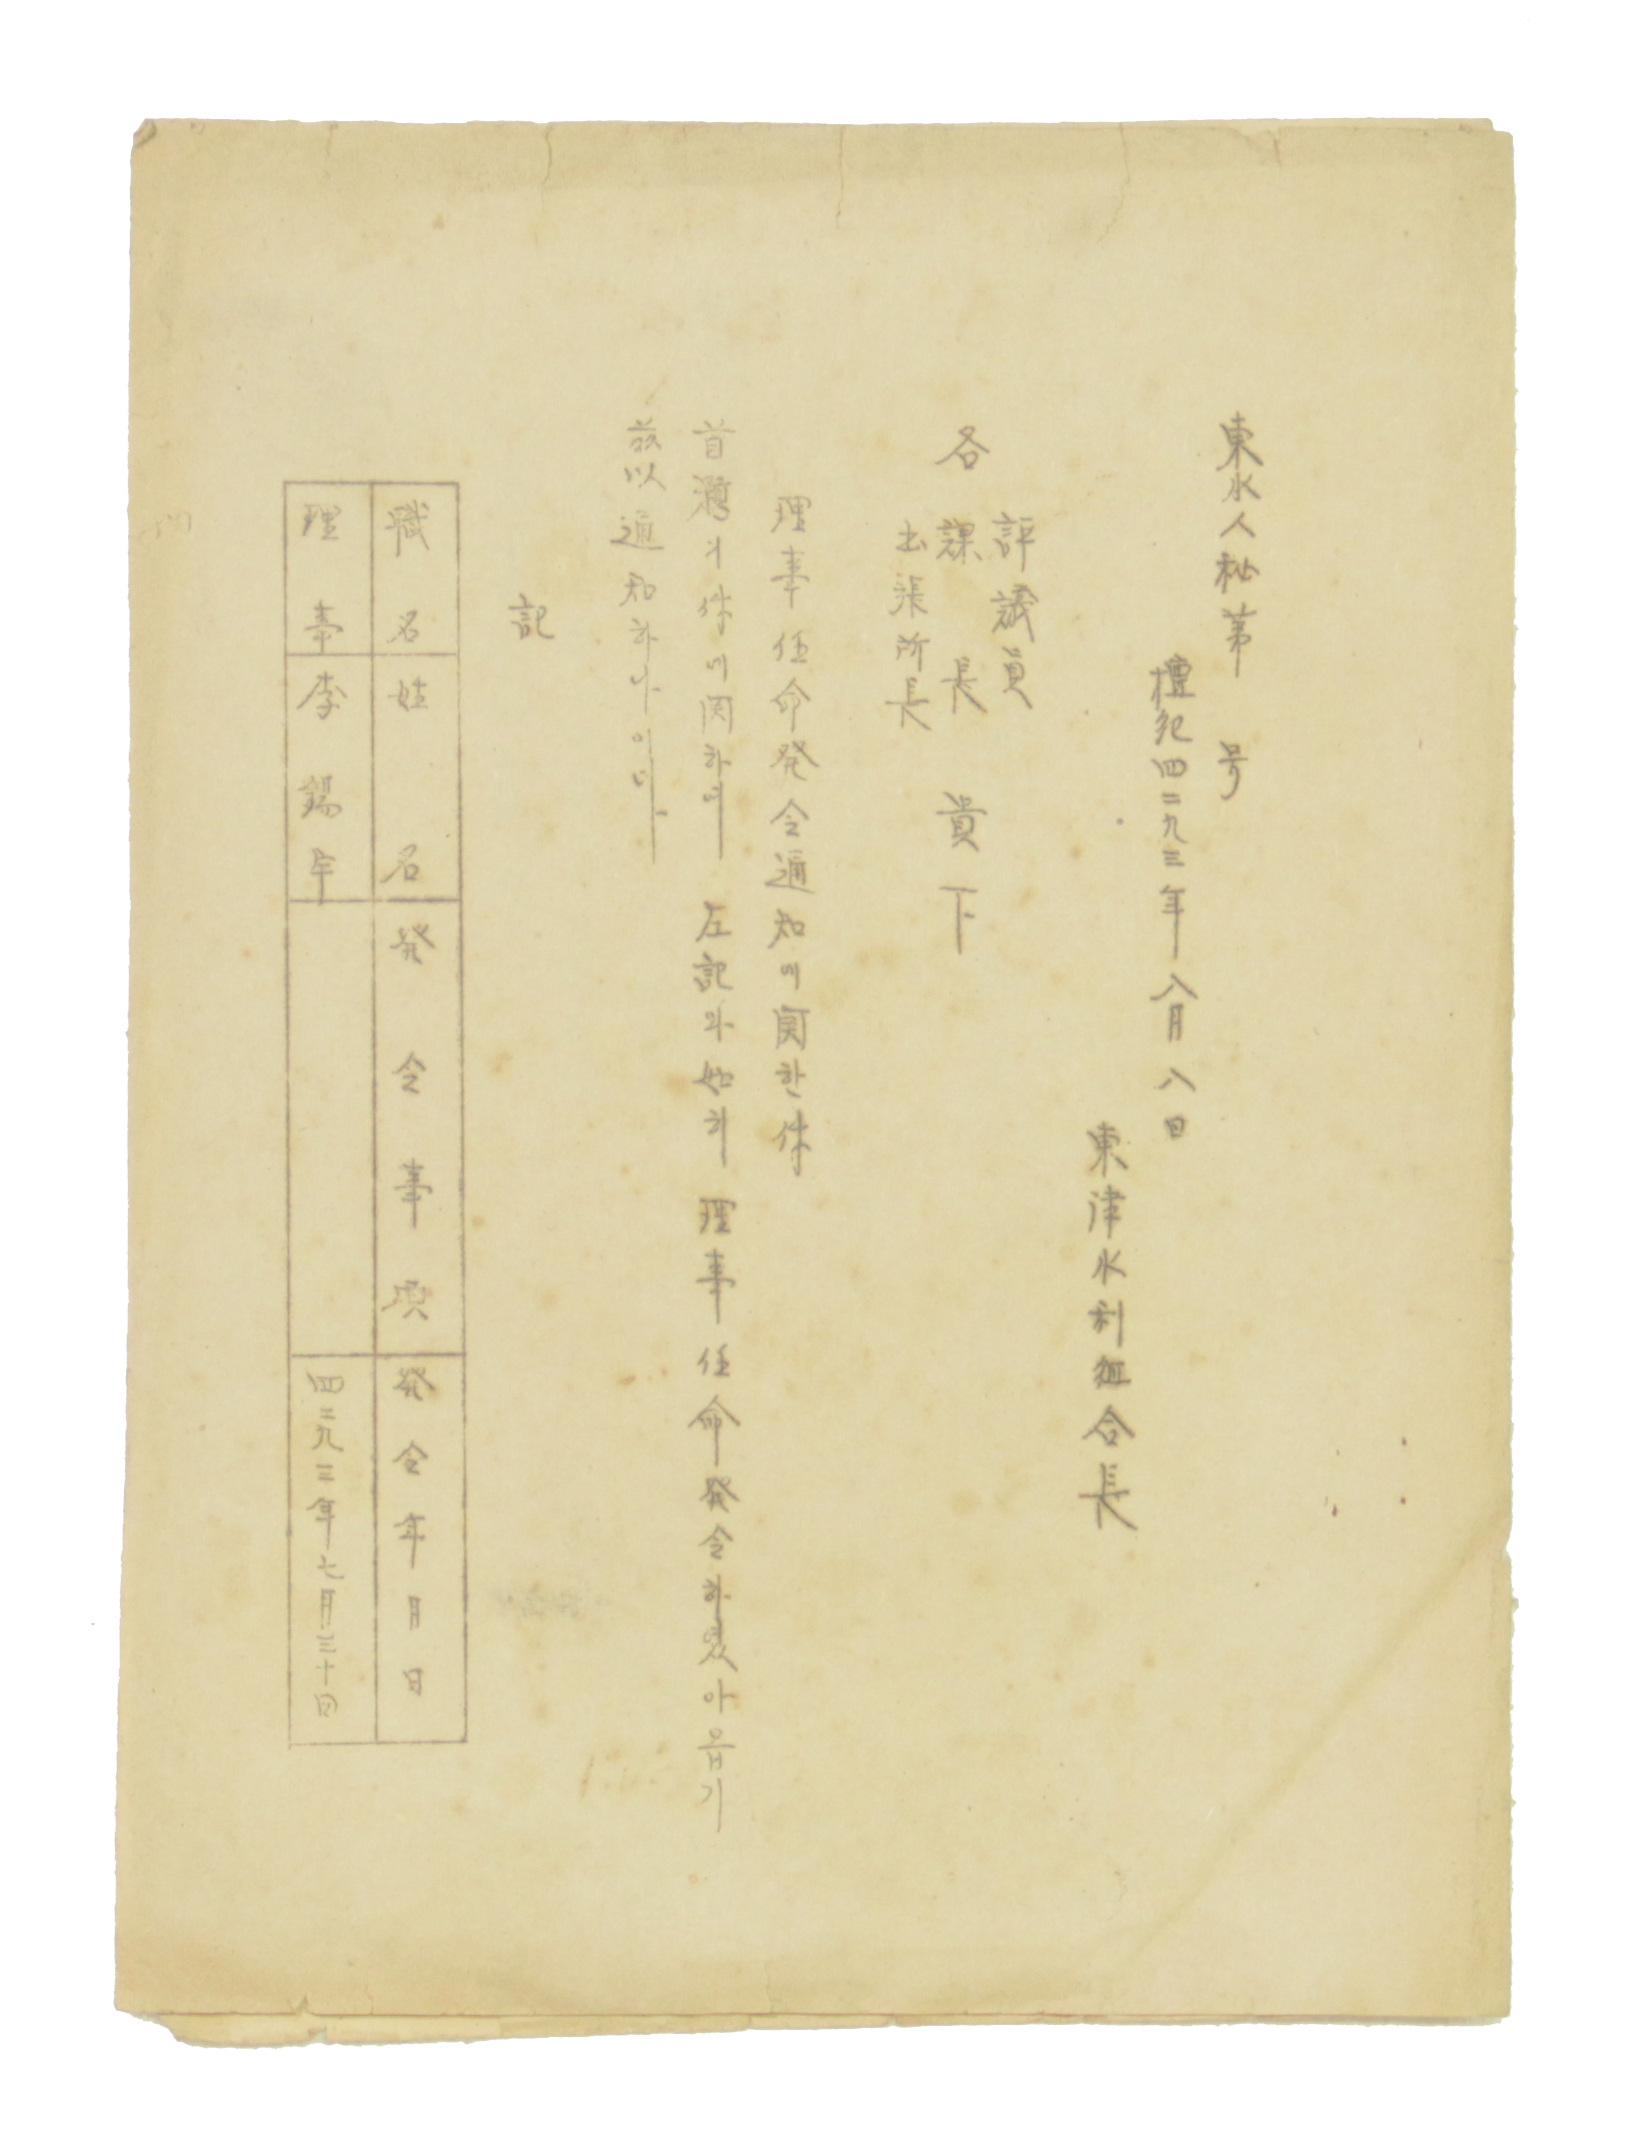 東水人秘第　号
檀紀四二九三年八月八日
東津水利組合長
評議員
各課長　貴下
出張所長
理事任命発令通知에関한件
首題의件에関하여 左記와如히 理事任命発令하였아옵기
玆以通知하나이다
記
職名 姓名 発令事項 発令年月日
理事 李錫 四二九三年七月三十日